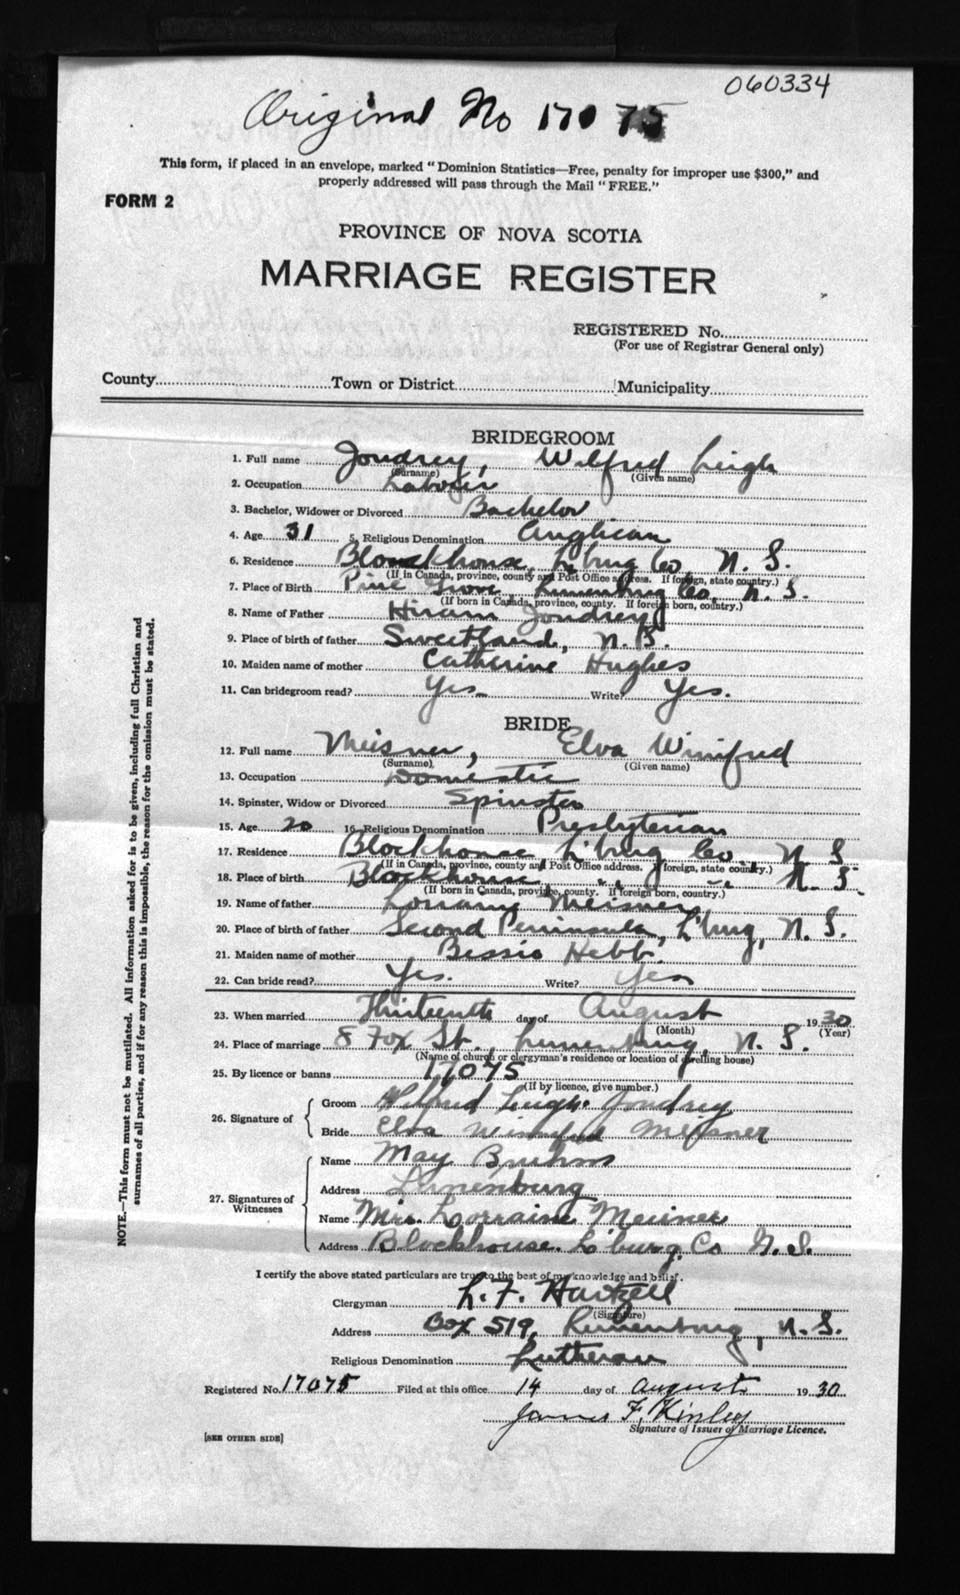 060334
Original No 17075
This form, if placed in an envelope, marked "Dominion Statistics—Free, penalty for improper use $300," and
properly addressed will pass through the Mail "FREE."
FORM 2
PROVINCE OF NOVA SCOTIA
MARRIAGE REGISTER
REGISTERED No.
(For use of Registrar General only)
County Town or District Municipality
BRIDEGROOM
1. Full name Joudrey, Wilfred Leigh
(Surname) (Given name)
2. Occupation Labourer
3. Bachelor, Widower or Divorced Bachelor
4. Age 31 5. Religious Denomination Anglican
6. Residence Blockhouse, L'burg Co, N. S.
(If in Canada, province, county and Post Office address. If foreign, state country.)
7. Place of Birth Pine Grove Lunenburg Co, N. S.
(If born in Canada, province, county. If foreign born, country.)
8. Name of Father Hiram Joudrey
9. Place of birth of father Sweetland, N. B.
10. Maiden name of mother Catherine Hughes
11. Can bridegroom read? Yes Write? Yes.
BRIDE
12. Full name Meisner, Elva Winifred
(Surname) (Given name)
13. Occupation Domestic
14. Spinster, Widow or Divorced Spinster
15. Age 20 16. Religious Denomination Presbyterian
17. Residence Blockhouse L'burg Co N. S
(If in Canada, province, county and Post Office address. If foreign, state country.)
18. Place of birth Blockhouse " " N. S.
(If born in Canada, province, county. If foreign born, country.)
19. Name of father Lorrany Meisner
20. Place of birth of father Second Peninsula, L'burg, N. S.
21. Maiden name of mother Bessie Hebb.
22. Can bride read? Yes. Write? Yes
23. When married Thirteenth day of August 1930
(Month) (Year)
24. Place of marriage 8 Fox St., Lunenburg, N. S.
(Name of church or clergyman's residence or location of dwelling house)
25. By licence or banns 17075
(If by licence, give number.)
26. Signature of
Groom Wilfred Leigh Joudrey
Bride Elva Winnifred Meisner
27. Signatures of Witnesses
Name May Bruhm
Address Lunenburg
Name Mrs. Lorraine Meisner
Address Blockhouse. L'burg. Co N. S.
I certify the above stated particulars are true to the best of my knowledge and belief.
Clergyman L. F. Hartzell
(Signature)
Address Box 519, Lunenburg, N. S.
Religious Denomination Lutheran
Registered No. 17075 Filed at this office 14 day of August 1930
James F. Kinley
Signature of Issuer of Marriage Licence.
[SEE OTHER SIDE]
NOTE.—This form must not be mutilated. All information asked for is to be given, including full Christian and
surnames of all parties, and if for any reason this is impossible, the reason for the omission must be stated.